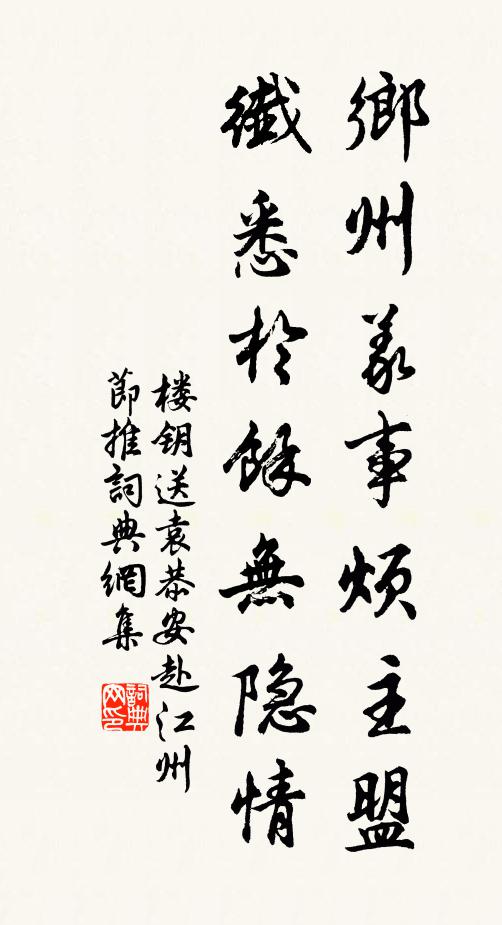 鄉州義事煩主盟
纖悉於餘無隐情
楼钥送袁恭安赴江州
節推詞典網集
詞典網印